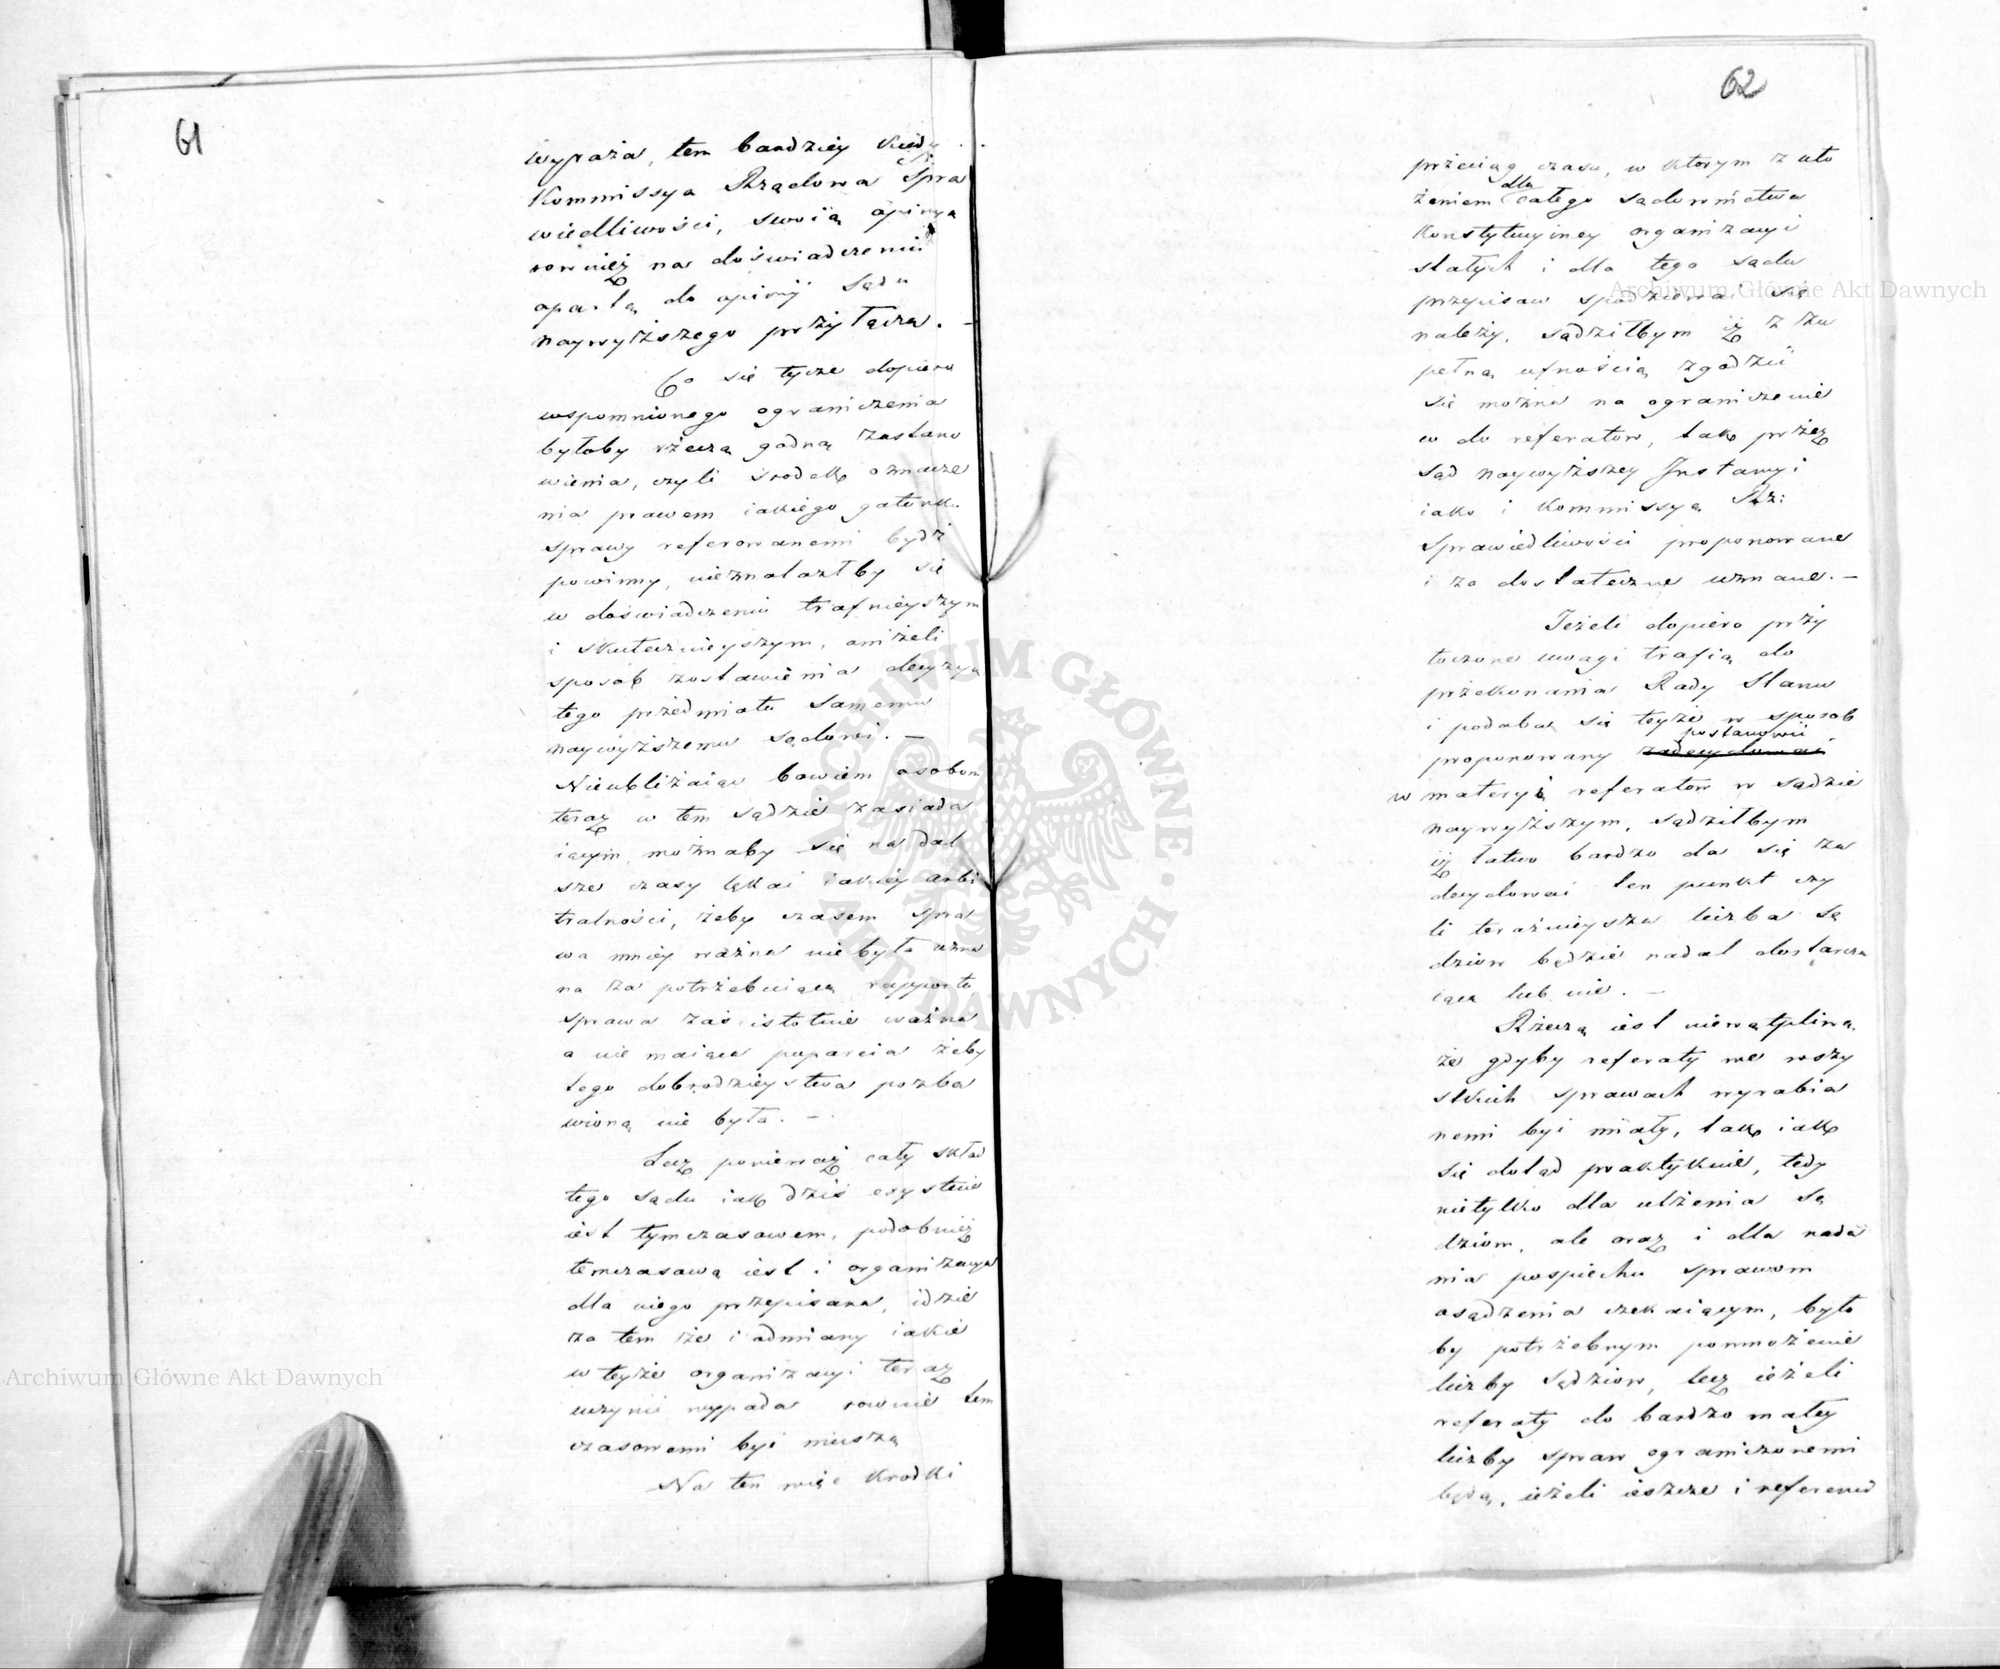 61
wyraża, tem bardziey kiedy
Kommissya Rządowa Spra
wiedliwości, swoią opinyą
rownież na doświadczeniu
opartą do opinij Sądu
naywyższego przyłącza. –
Co się tycze dopiero
wspomnionego ograniczenia
byłoby rżeczą godną zastano
wienia, czyli środek oznacze
nia prawem iakiego gatunk.
sprawy referowanemi bydź
powinny, nieznalazłby się
w doświadczeniu trafnieyszym
i skutecznieyszym, aniżeli
sposób zostawienia decyzyi
tego przedmiotu samemu
naywyższemu sądowi. –
Nieubliżaiąc bowiem osobom
teraz w tem Sądzie zasiada
iącym, możnaby się na dal
sze czasy lękać iakiey arbi
tralności, żeby czasem spra
wa mniey ważna nie była uzna
na za potrzebuiącą rapportu
sprawa zaś istotnie ważna
a nie maiąca poparcia żeby
tego dobrodzieystwa pozba
wioną nie była. –
Lecz ponieważ cały skład
tego Sądu iak dziś exystuie
iest tymczasowem, podobnież
temczasową iest i organizacya
dla niego przepisana, idzie
za tem że i odmiany iakie
w teyże organizacyi teraz
uczynić wypada rownie tem
czasowemi być muszą
Na ten więc krodki
62
przeciąg czasu, w ktorym z uło
żeniem dla całego sądownictwa
Konstytucyiney organizacyi
stałych i dla tego sądu
przepisow spodziewać się
należy, sądziłbym iż z zu
pełną ufnością zgodzić
się można na ograniczenie
co do referatow, tak przez
Sąd naywyższey Instancyi
iako i Kommissyą Rz:
Sprawiedliwości proponowane
i za dostateczne uznane. –
Jeżeli dopiero przy
toczone uwagi trafią do
przekonania Rady Stanu
i podoba się teyże w sposob
proponowany zadecydować postanowić
w materyi referatow w Sądzie
naywyższym, sądziłbym
iż łatwo bardzo da się za
decydować ten punkt czy
li teraźnieysza liczba Sę
dziow będzie nadal dostarcza
iącą lub nie. –
Rżeczą iest niewątpliwą,
że gdyby referaty we wszy
stkich sprawach wyrabia
nemi być miały, tak iak
się dotąd praktykuie, tedy
nietylko dla ulżenia Sę
dziom, ale oraz i dla nada
nia pospiechu sprawom
osądzenia czekaiącym, było
by potrzebnym pomnożenie
liczby Sędziow, lecz ieżeli
referaty do bardzo małey
liczby spraw ograniczonemi
będą, ieżeli ieszcze i referend
Archiwum Główne Akt Dawnych
Archiwum Główne Akt Dawnych
ARCHIWUM GŁÓWNE · AKT DAWNYCH ·